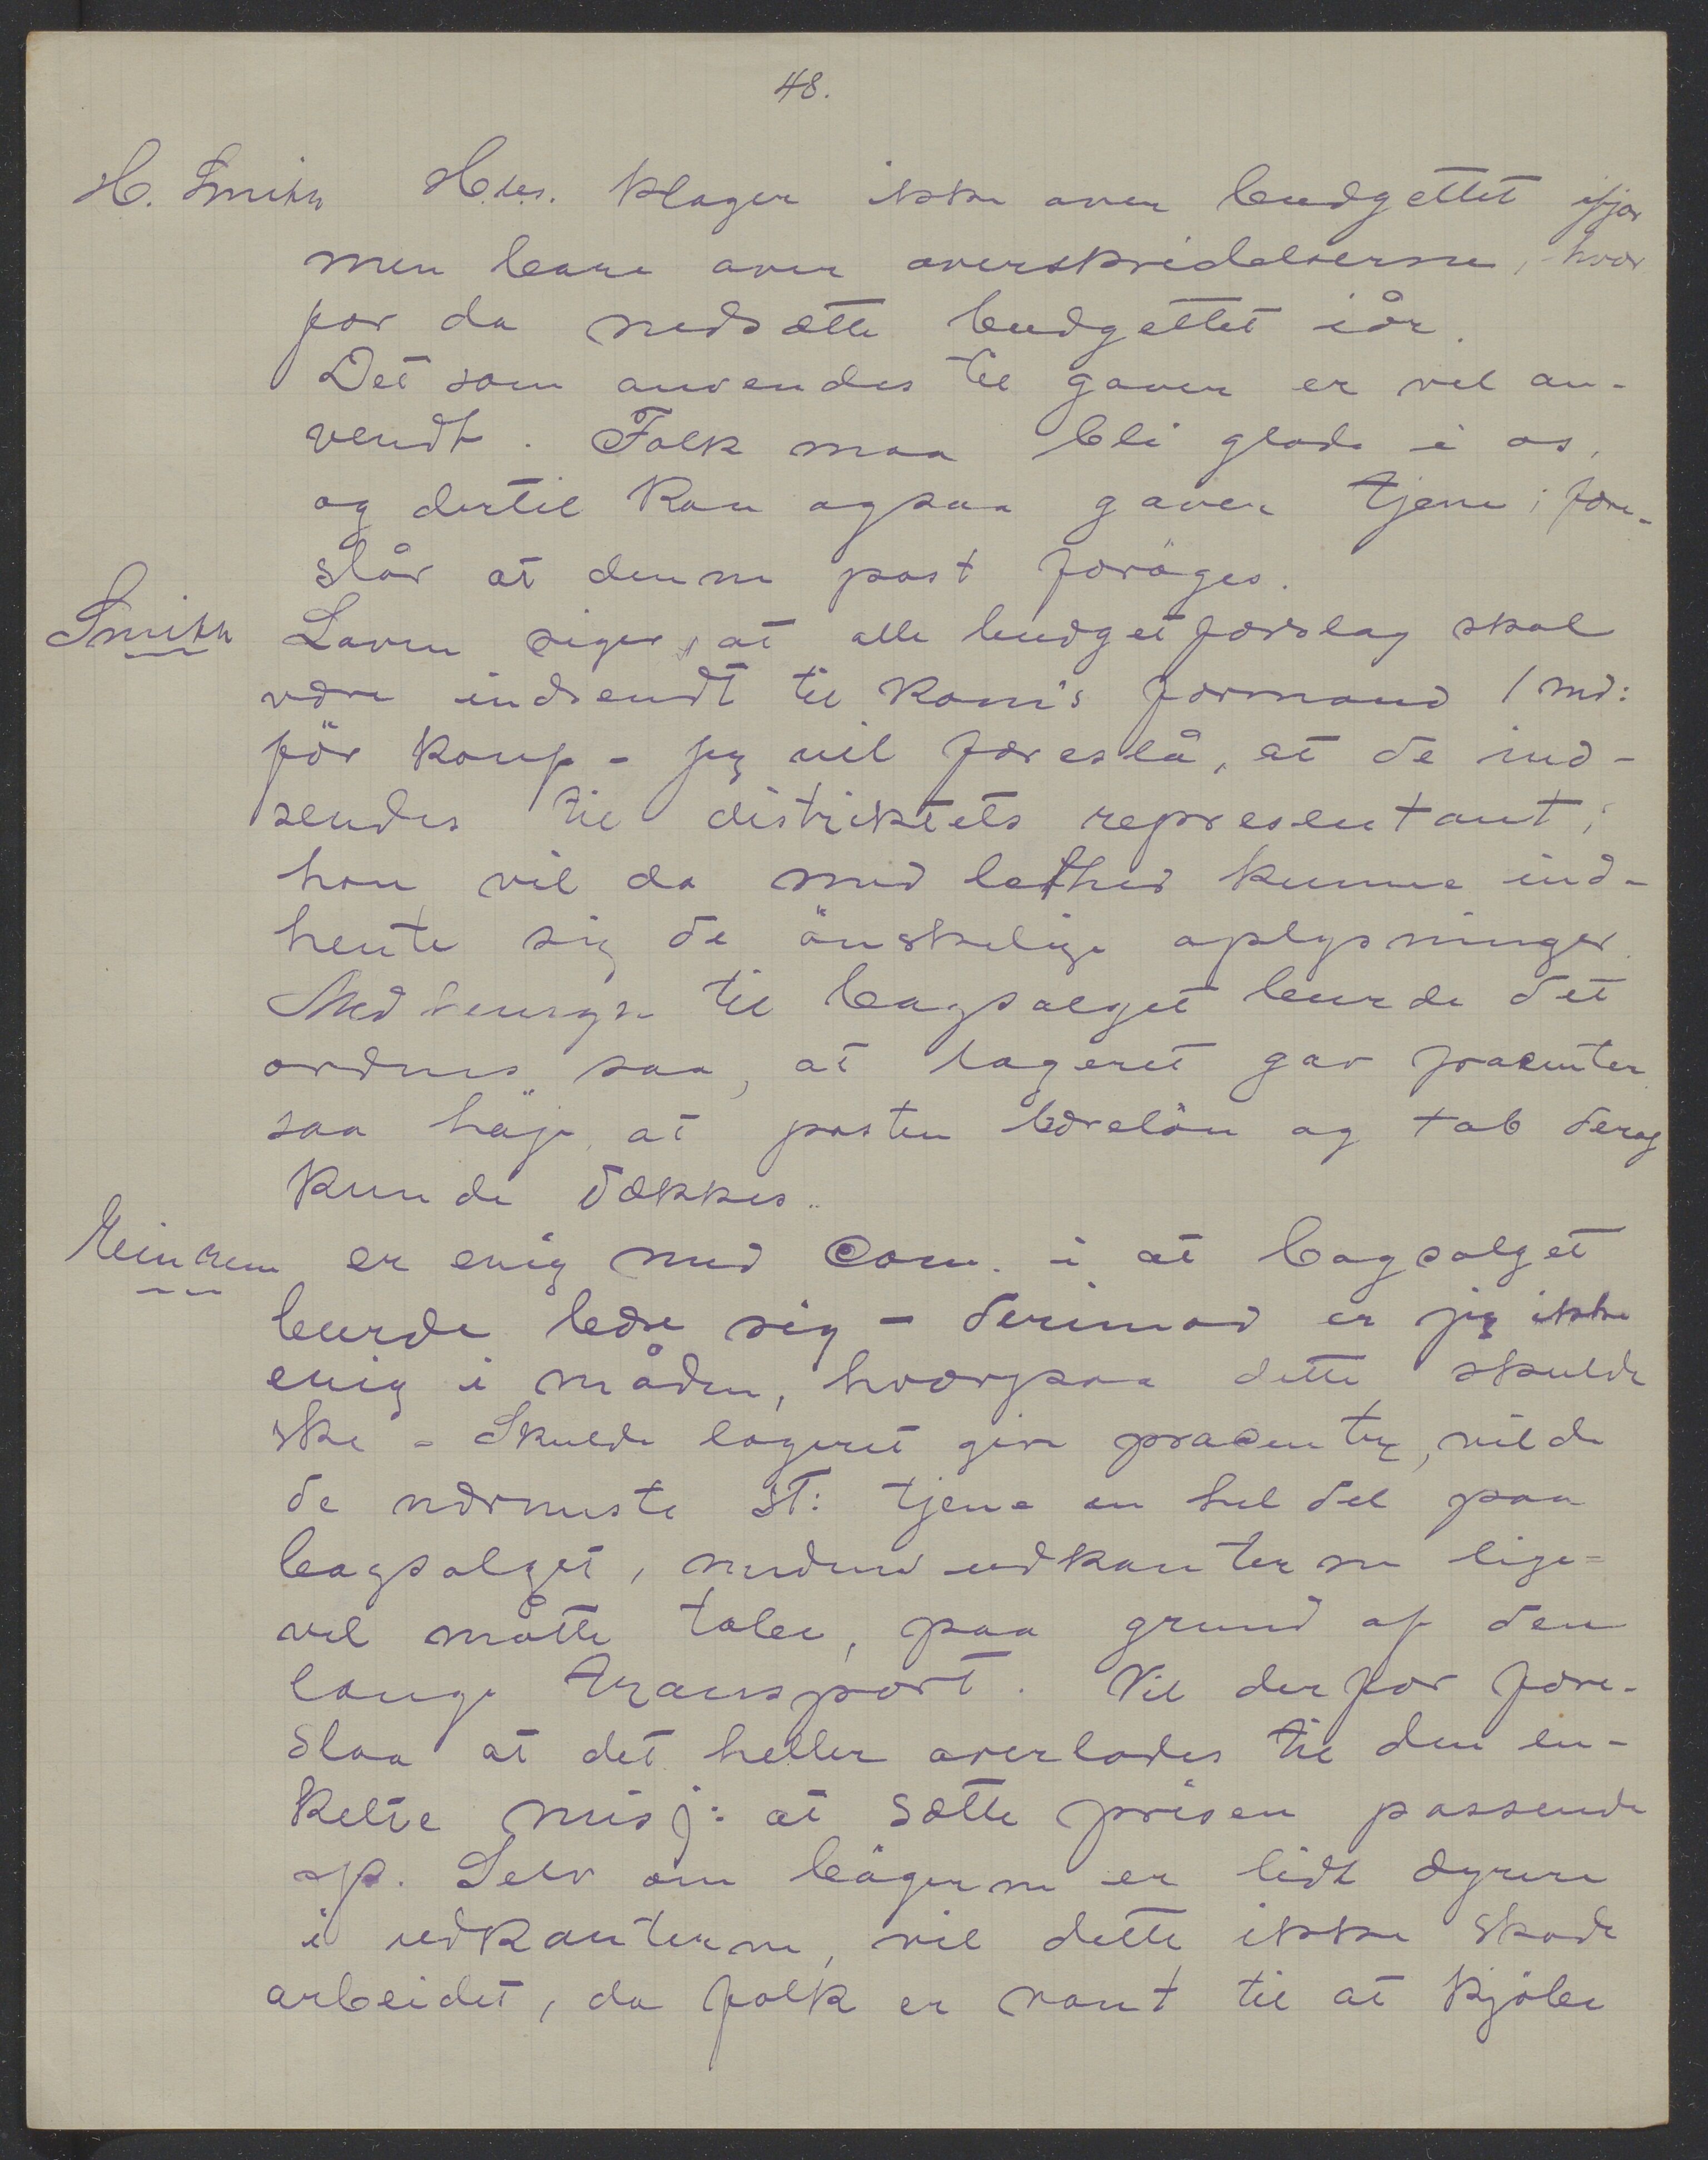 48.
H. Smith H.bs. klager ikke over budgettet ifjor
men bare over overskridelserne, hvor
for da nedsætte budgettet iår.
Det som anvendes til gaver er vel an-
vendt. Folk maa bli glade i os,
og dertil kan ogsaa gaver tjene; fore-
slår at denne post forøges.
Smith Loven siger, at alle budgetforslag skal
være indsendt til Kom's formand 1 md:
før konf - jeg vil foreslå, at de ind-
sendes til distriktets representant;
han vil da med lethed kunne ind-
hente sig de ønskelige oplysninger.
Med hensyn til bogsalget burde det
ordnes saa, at lageret gav procenter
saa høje, at posten bæreløn og tab derog
kunde dækkes.
Meinhem er enig med Com. i at bogsalget
burde bære sig - derimod er jeg ikke
enig i måden, hvorpaa dette skulde
ske - Skulde lageret give procenter, vilde
de nærmeste St: tjene en hel del paa
bogsalget, medens udkanterne lige-
vel måtte tabe, paa grund af den
lange transport. Vil derfor fore-
slaa at det heller overlades til den en-
kelte misj: at sætte prisen passende
op. Selv om bøgerne er lidt dyrere
i udkanterne, vil dette ikke skade
arbeidet, da folk er vant til at kjøbe